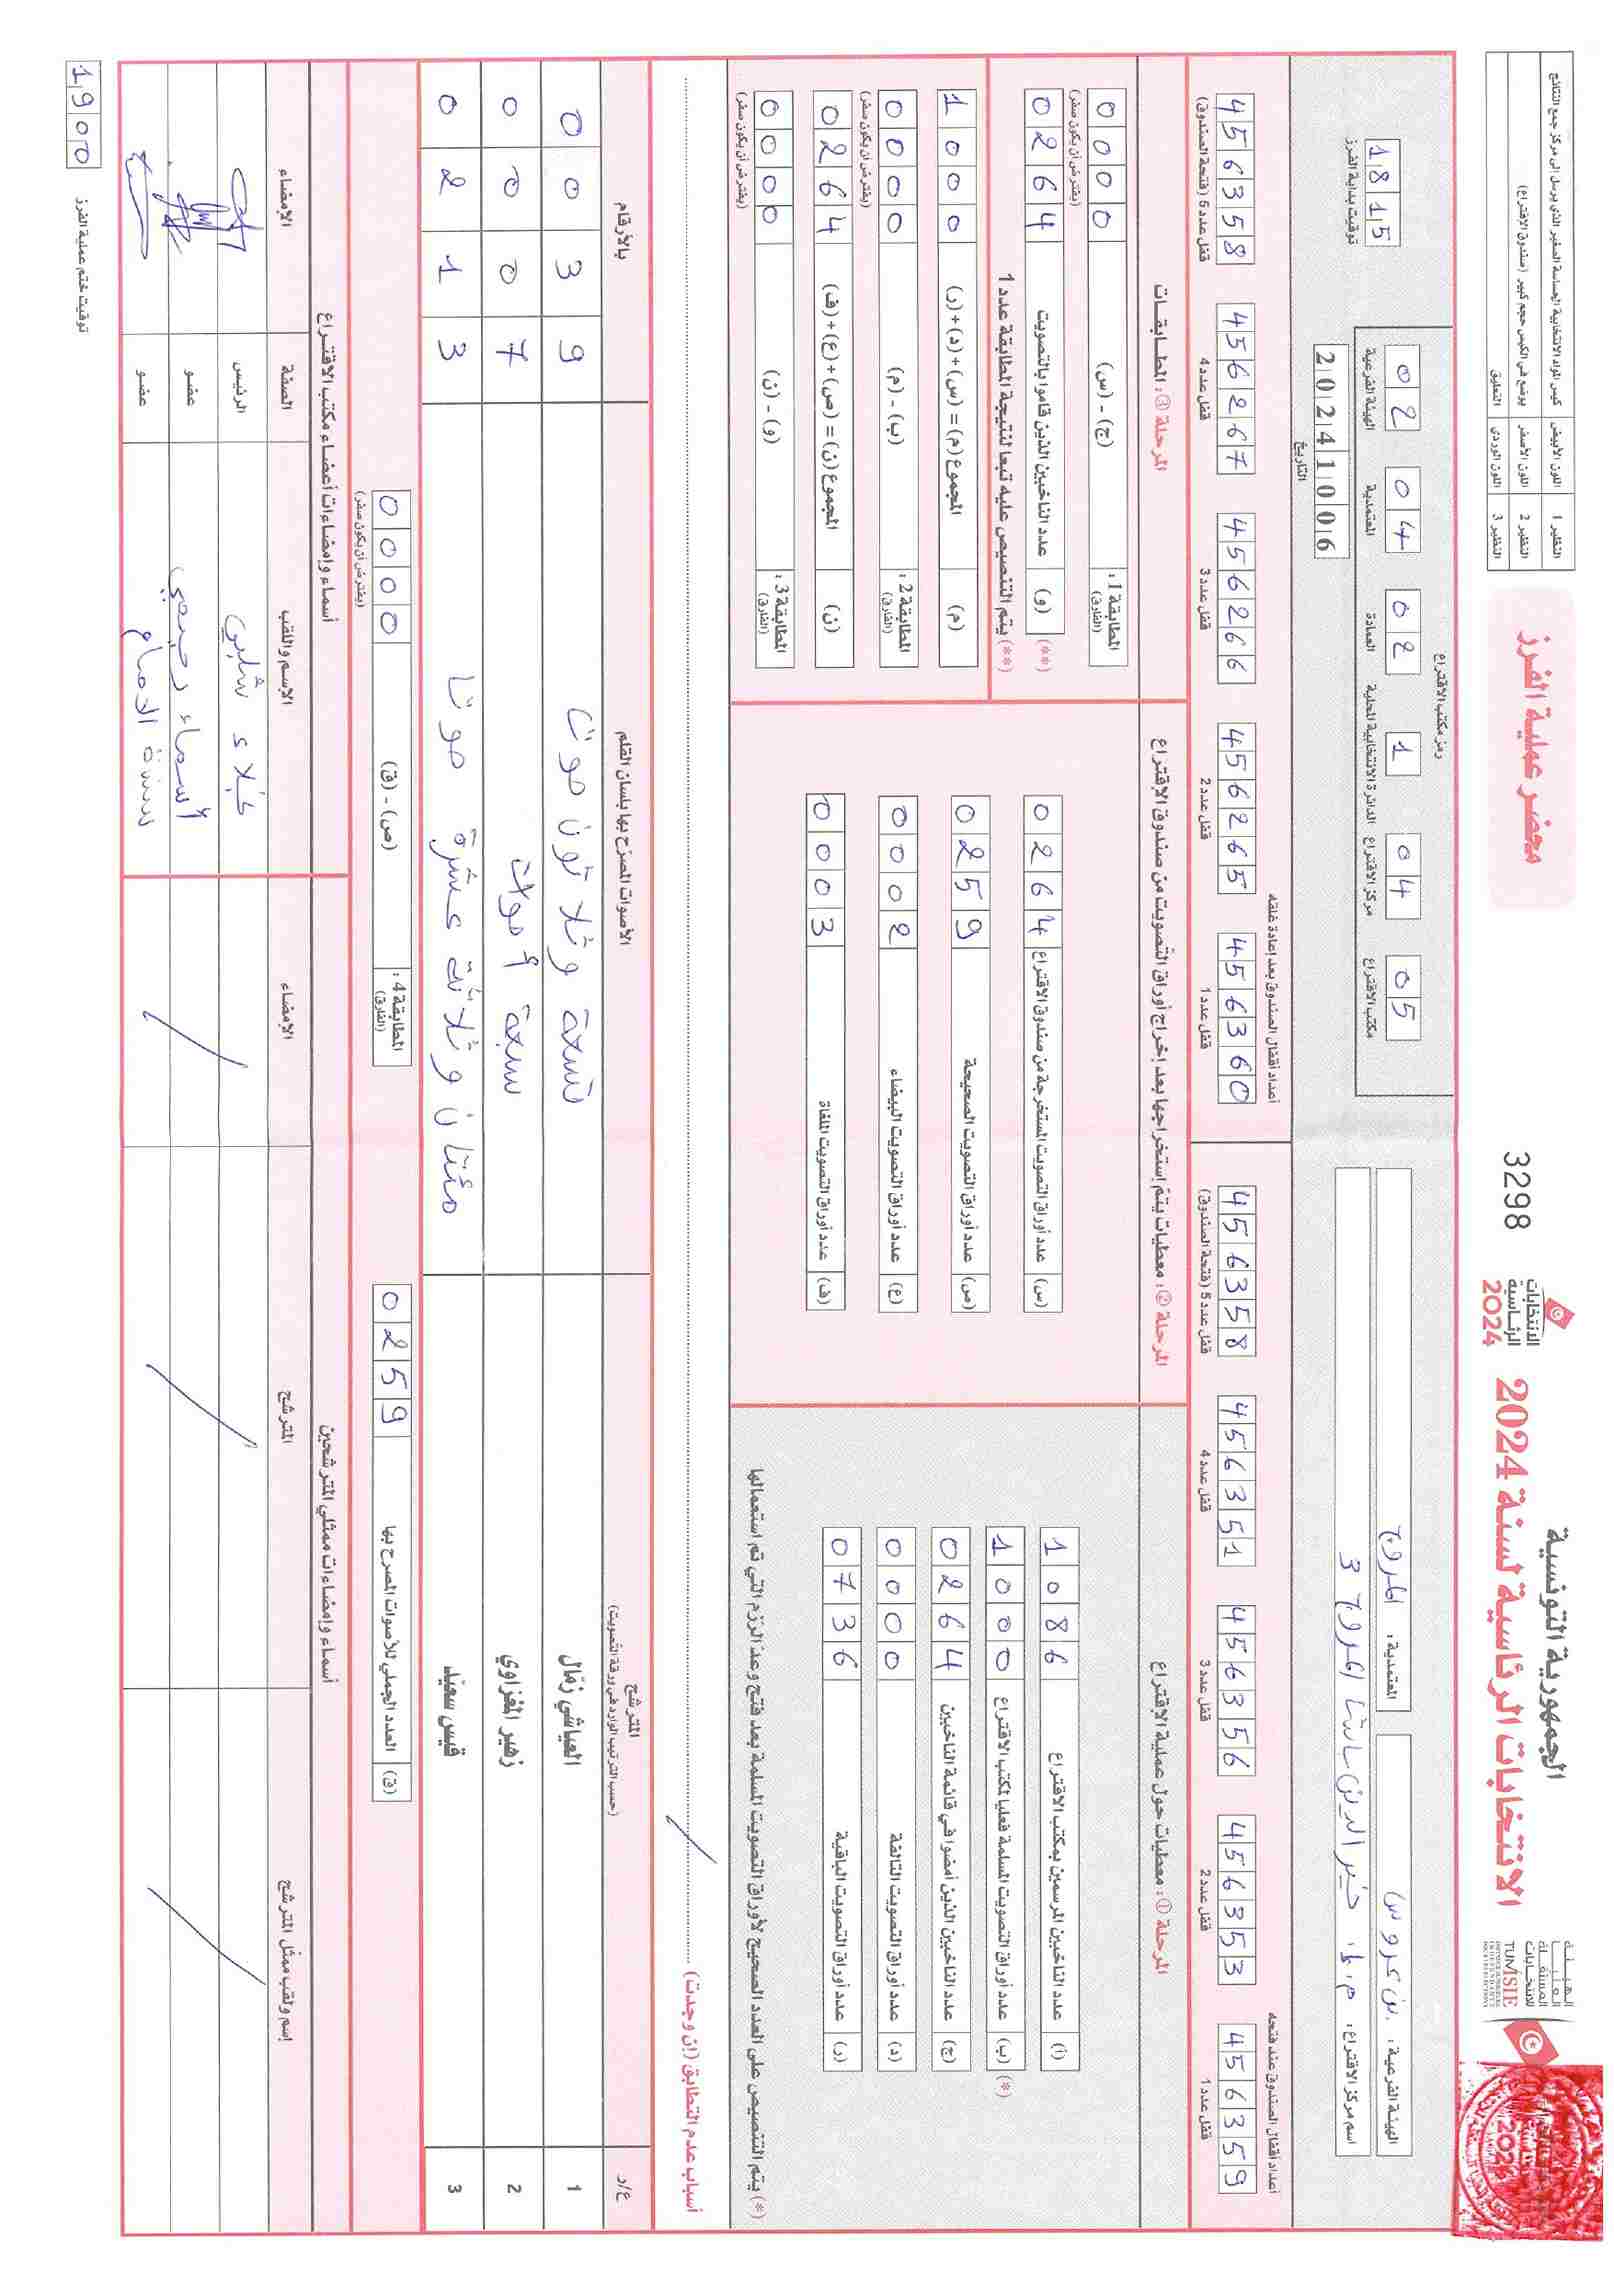 الجمهورية التونسية
الانتخابات الرئاسية لسنة 2024
الهيئة العليا المستقلة للانتخابات
TUNISIE
الانتخابات الرئاسية 2024
3298
محضر عملية الفرز
النظير 1 اللون الأبيض كيس المواد الانتخابية الحساسة الصغير الذي يرسل إلى مركز جمع النتائج
النظير 2 اللون الأصفر يوضع في الكيس حجم كبير (صندوق الاقتراع)
النظير 3 اللون الوردي التعليق
الهيئة الفرعية: بن عروس المعتمدية: المروج
اسم مركز الاقتراع: م.إ. خير الدين باشا المروج 3
رمز مكتب الاقتراع
02 04 02 1 04 05
الهيئة الفرعية المعتمدية العمادة الدائرة الانتخابية المحلية مركز الاقتراع مكتب الاقتراع
20241006
التاريخ
1815
توقيت بداية الفرز
أعداد أقفال الصندوق عند فتحه
456359 456353 456356 456351 456358
قفل عدد 1 قفل عدد 2 قفل عدد 3 قفل عدد 4 قفل عدد 5 (فتحة الصندوق)
أعداد أقفال الصندوق بعد إعادة غلقه
456360 456265 456266 456267 456358
قفل عدد 1 قفل عدد 2 قفل عدد 3 قفل عدد 4 قفل عدد 5 (فتحة الصندوق)
المرحلة ①: معطيات حول عملية الاقتراع
(أ) عدد الناخبين المرسمين بمكتب الاقتراع 1086
(ب) عدد أوراق التصويت المسلمة فعليا لمكتب الاقتراع 1000 (*)
(ج) عدد الناخبين الذين أمضوا في قائمة الناخبين 0264
(د) عدد أوراق التصويت التالفة 0000
(ر) عدد أوراق التصويت الباقية 0736
(*) يتم التنصيص على العدد الصحيح لأوراق التصويت المسلمة بعد فتح وعد الرزم التي تم استعمالها
المرحلة ②: معطيات يتم إستخراجها بعد إخراج أوراق التصويت من صندوق الإقتراع
(س) عدد أوراق التصويت المستخرجة من صندوق الاقتراع 0264
(ص) عدد أوراق التصويت الصحيحة 0259
(ع) عدد أوراق التصويت البيضاء 0002
(ف) عدد أوراق التصويت الملغاة 0003
المرحلة ③: المطابقات
المطابقة 1: (الفارق) (ج) - (س) 000
(يفترض أن يكون صفر)
(**) (و) عدد الناخبين الذين قاموا بالتصويت 0264
(**) يتم التنصيص عليه تبعا لنتيجة المطابقة عدد 1
(م) المجموع (م) = (س) + (د) + (ر) 1000
المطابقة 2: (الفارق) (ب) - (م) 0000
(يفترض أن يكون صفر)
(ن) المجموع (ن) = (ص) + (ع) + (ف) 0264
المطابقة 3: (الفارق) (و) - (ن) 0000
(يفترض أن يكون صفر)
أسباب عدم التطابق (إن وجدت)
ع/ر المترشح (حسب الترتيب الوارد في ورقة التصويت) الأصوات المصرّح بها بلسان القلم بالأرقام
1 العياشي زمّال تسعة وثلاثون صوت 0039
2 زهير المغزاوي سبعة أصوات 0007
3 قيس سعيّد مئتان وثلاثة عشرة صوتا 0213
(ق) العدد الجملي للأصوات المصرح بها 0259
المطابقة 4: (الفارق) (ص) - (ق) 0000
(يفترض أن يكون صفر)
أسماء وإمضاءات ممثلي المترشحين
إسم ولقب ممثل المترشح المترشح الإمضاء
أسماء وإمضاءات أعضاء مكتب الاقتراع
الإسم واللقب الصفة الإمضاء
شلبي الرئيس
أسماء رحيمي عضو
عضو
1900 توقيت ختم عملية الفرز